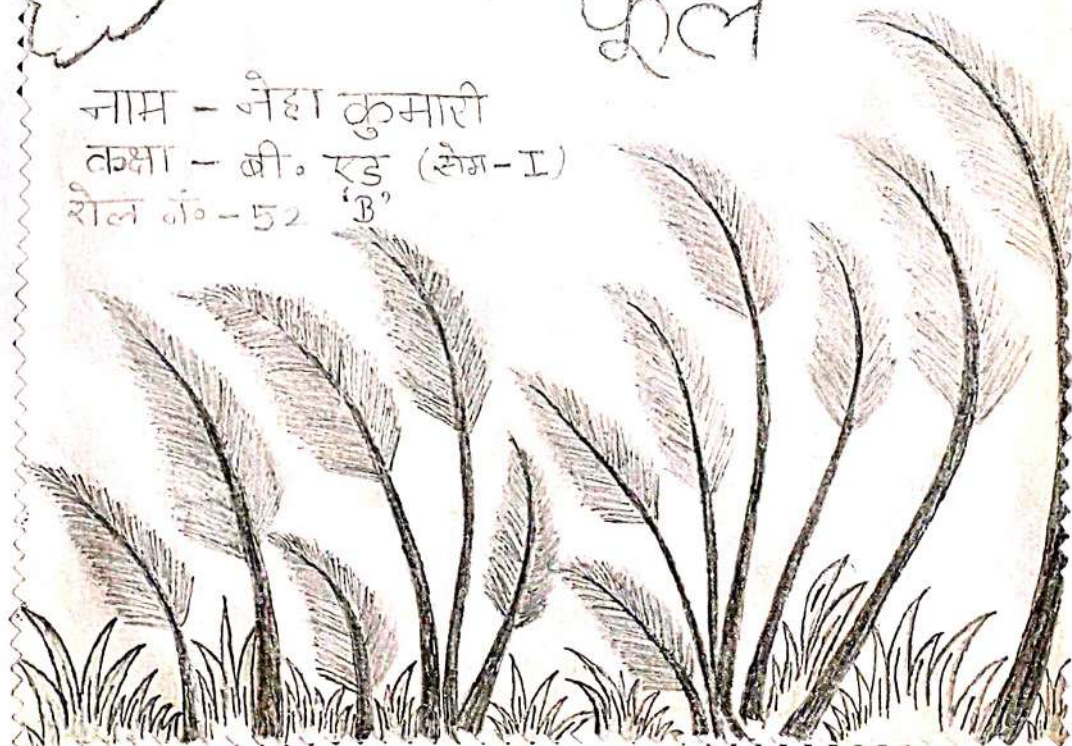 फूल
नाम - नेहा कुमारी
कक्षा - बी. एड (सेम-I)
रोल नं० -52 'B'